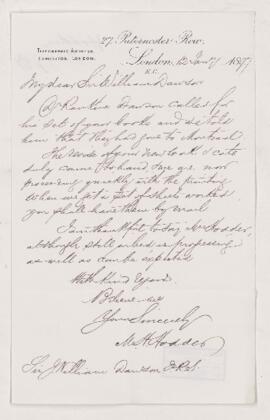 27, Paternoster Row,
TELEGRAPHIC ADDRESS,
LONDON.
London, 12 Jany 1897
E.C.
My dear Sir William Dawson
Dr Rankine Dawson called for
his set of your books and we told
him that they had gone to Montreal
The rest of your new book
duly came to hand & we are now
proceeding quickly with the printing
When we get a set of sheets worked
you shall have them by mail
I am thankful to say Mr Hodder,
although still in bed is progressing
as well as can be expected
With kind regards
Believe me
Yours Sincerely
M H Hodder
Sir William Dawson F.R.S.